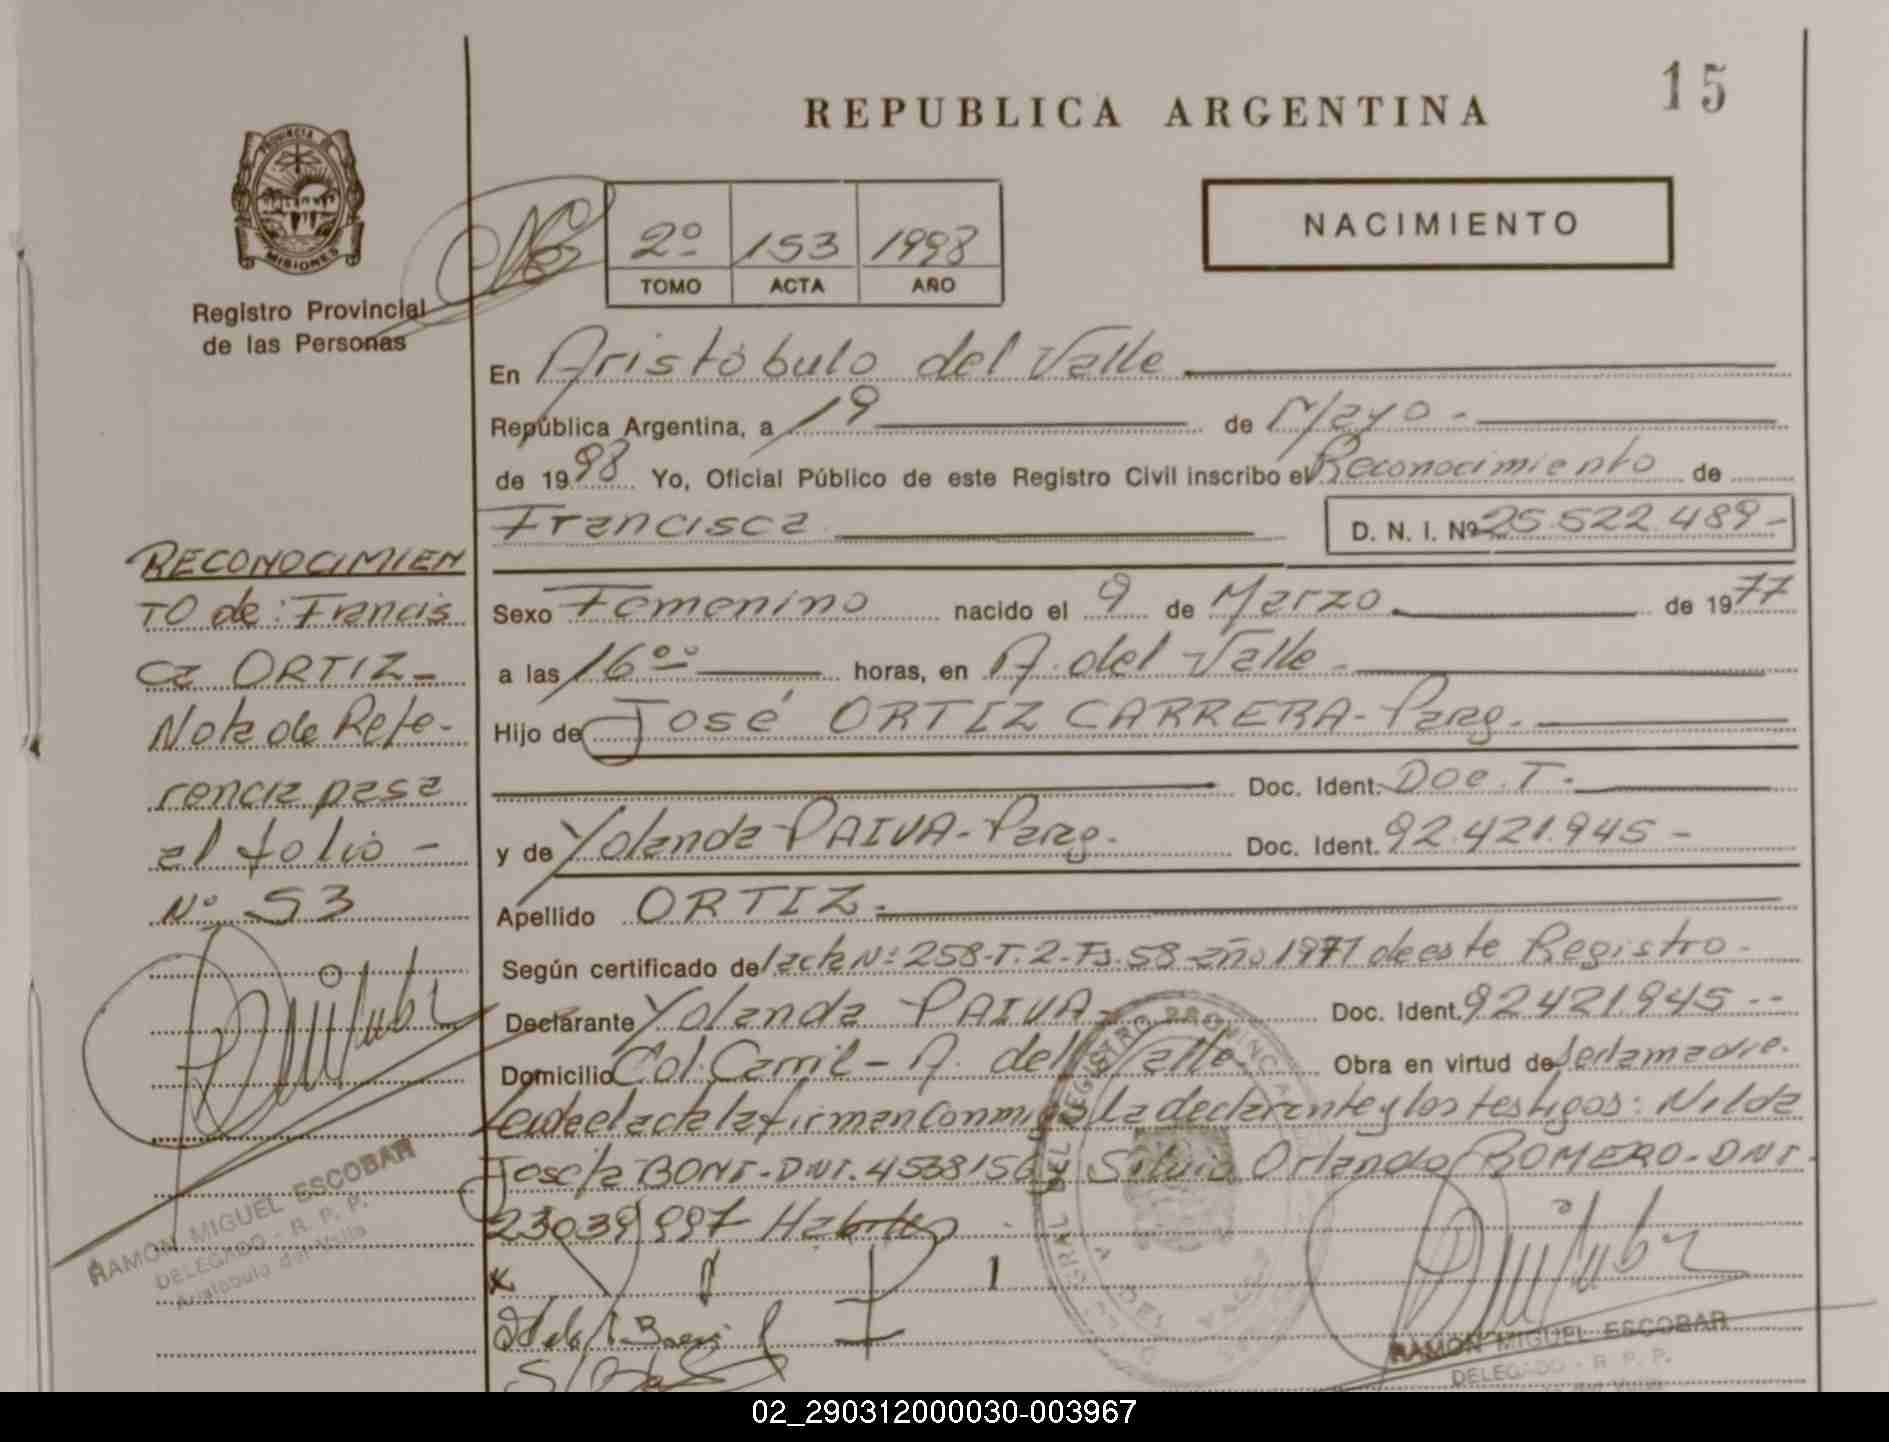 15
REPUBLICA ARGENTINA
PROVINCIA DE
MISIONES
Registro Provincial
de las Personas
2º 153 1998
TOMO ACTA AÑO
NACIMIENTO
En Aristóbulo del Valle
República Argentina, a 19 de Mayo -
de 1998 Yo, Oficial Público de este Registro Civil inscribo el Reconocimiento de
Francisca D. N. I. Nº 25.522.489 -
Sexo Femenino nacido el 9 de Marzo de 1977
a las 16ºº horas, en A. del Valle -
Hijo de José ORTIZ CARRERA - Parg.
Doc. Ident. Doc. T.
y de Yolanda PAIVA - Parg. Doc. Ident. 92.421.945 -
Apellido ORTIZ.
Según certificado del acta Nº 258-T.2-Fs.58-año 1977 de este Registro -
Declarante Yolanda PAIVA - Doc. Ident. 92421.945 --
Domicilio Col. Carril - A. del Valle - Obra en virtud de ser la madre.
Leída el acta la firman conmigo la declarante y los testigos: Nilda
Josefa BONI - DNI. 4538156 y Silvio Orlando ROMERO - DNI.
23039997 Habiles
RECONOCIMIEN
TO de: Francis
ca ORTIZ -
Nota de Refe-
rencia pasa
al folio -
Nº 53
RAMON MIGUEL ESCOBAR
DELEGADO - R. P. P.
Aristobulo del Valle
RAMON MIGUEL ESCOBAR
DELEGADO - R. P. P.
02_290312000030-003967